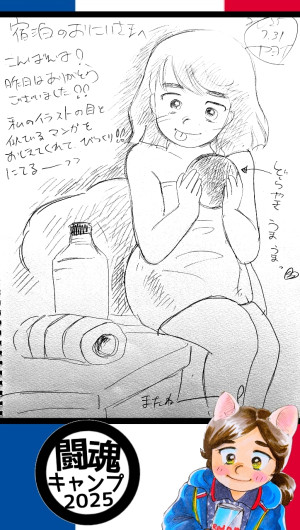 宿泊のおにいさまへ
こんばんは!
昨日はありがとう
ございました!!
私のイラストの目と
似ているマンガを
おしえてくれて、びっくり!!
にてるーーっっ
7.31
どらやき
うまうまっ
またねー
闘魂
キャンプ
2025